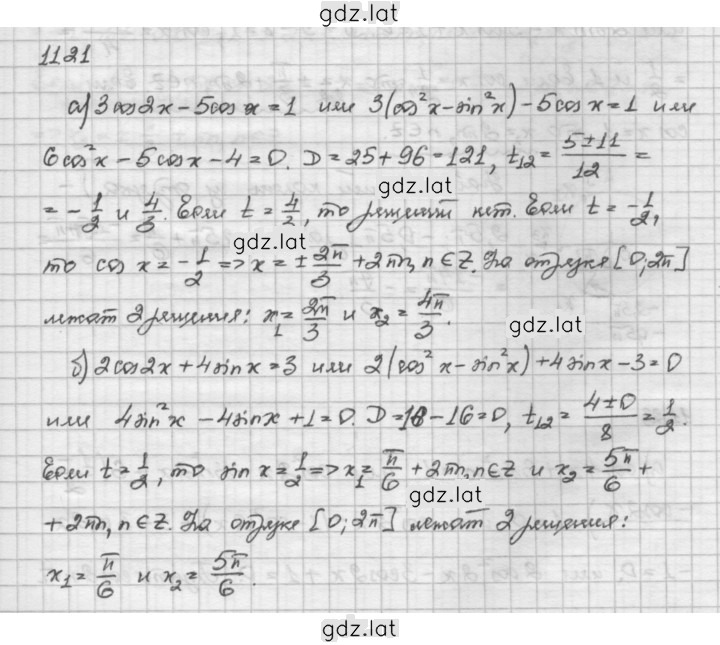 gdz.lat
1121
а) 3cos2x − 5cos x = 1 или 3(cos²x − sin²x) − 5cos x = 1 или
6cos²x − 5cos x − 4 = 0. D = 25 + 96 = 121, t₁₂ = (5 ± 11)/12 =
gdz.lat
= −1/2 и 4/3. Если t = 4/2, то решений нет. Если t = −1/2,
gdz.lat
то cos x = −1/2 => x = ±2π/3 + 2πn, n∈Z. На отрезке [0; 2π]
лежат 2 решения: x₁ = 2π/3 и x₂ = 4π/3.
gdz.lat
б) 2cos2x + 4sinx = 3 или 2(cos²x − sin²x) + 4sinx − 3 = 0
или 4sin²x − 4sinx + 1 = 0. D = 16 − 16 = 0, t₁₂ = (4 ± 0)/8 = 1/2.
Если t = 1/2, то sin x = 1/2 => x₁ = π/6 + 2πn, n∈Z и x₂ = 5π/6 +
gdz.lat
+ 2πn, n∈Z. На отрезке [0; 2π] лежат 2 решения:
x₁ = π/6 и x₂ = 5π/6.
gdz.lat